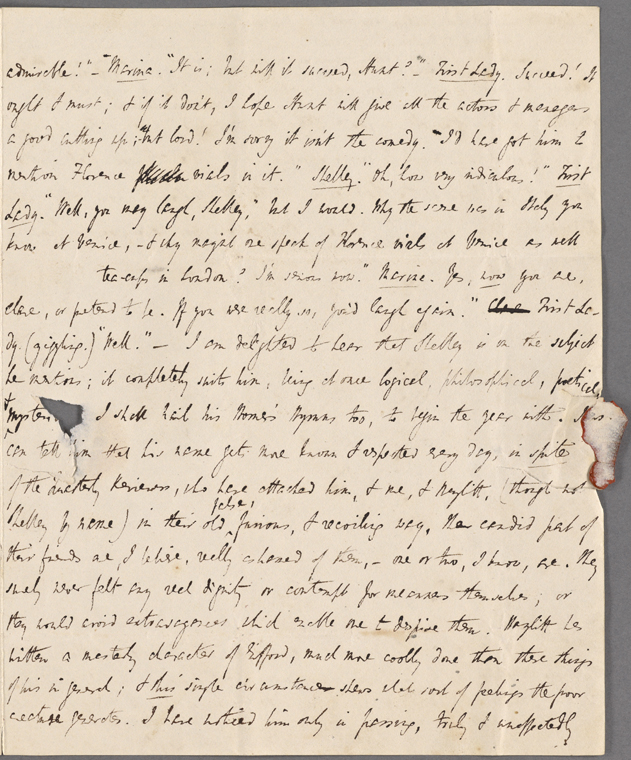 admirable!" — "Marina. "It is; but will it succeed, Hunt?" — First Lady. Succeed! It
ought & must; & if it don't, I hope Hunt will give all the actors & managers
a good cutting up; but lord! I'm sorry it isn't the comedy. "I'd have got him to
mention Florence vials in it." Shelley. "Oh, how very ridiculous!" First
Lady. "Well, you may laugh, Shelley," but I would. Why the scene was in Italy you
know at Venice, — & why might one speak of Florence vials at Venice as well
tea-cups in London? I'm serious now." Marina. Yes, now you are,
clare, or pretend to be. If you were really so, you'd laugh again." Clare First La-
dy. (giggling.) "Well." — I am delighted to hear that Shelley is on the subject
he mentions; it completely suits him, being at once logical, philosophical, poetical,
& myster I shall hail his Homer's Hymns too, to begin the year with.
can tell him that his name gets more known & respected every day, in spite
of the Quarterly Reviewers, who have attacked him, & me, & Hazlitt, (though not
Shelley by name) in their old, false, furious, & recoiling way. The candid part of
their friends are, I believe, really ashamed of them, — one or two, I know, are. They
surely never felt any real dignity or contempt for meanness themselves; or
they would avoid extravagances which enable one to despise them. Hazlitt has
written a masterly character of Gifford, much more coolly done than these things
of his in general; & this single circumstance shews what sort of feelings the poor
creature generates. I have noticed him only in passing, truly & unaffectedly